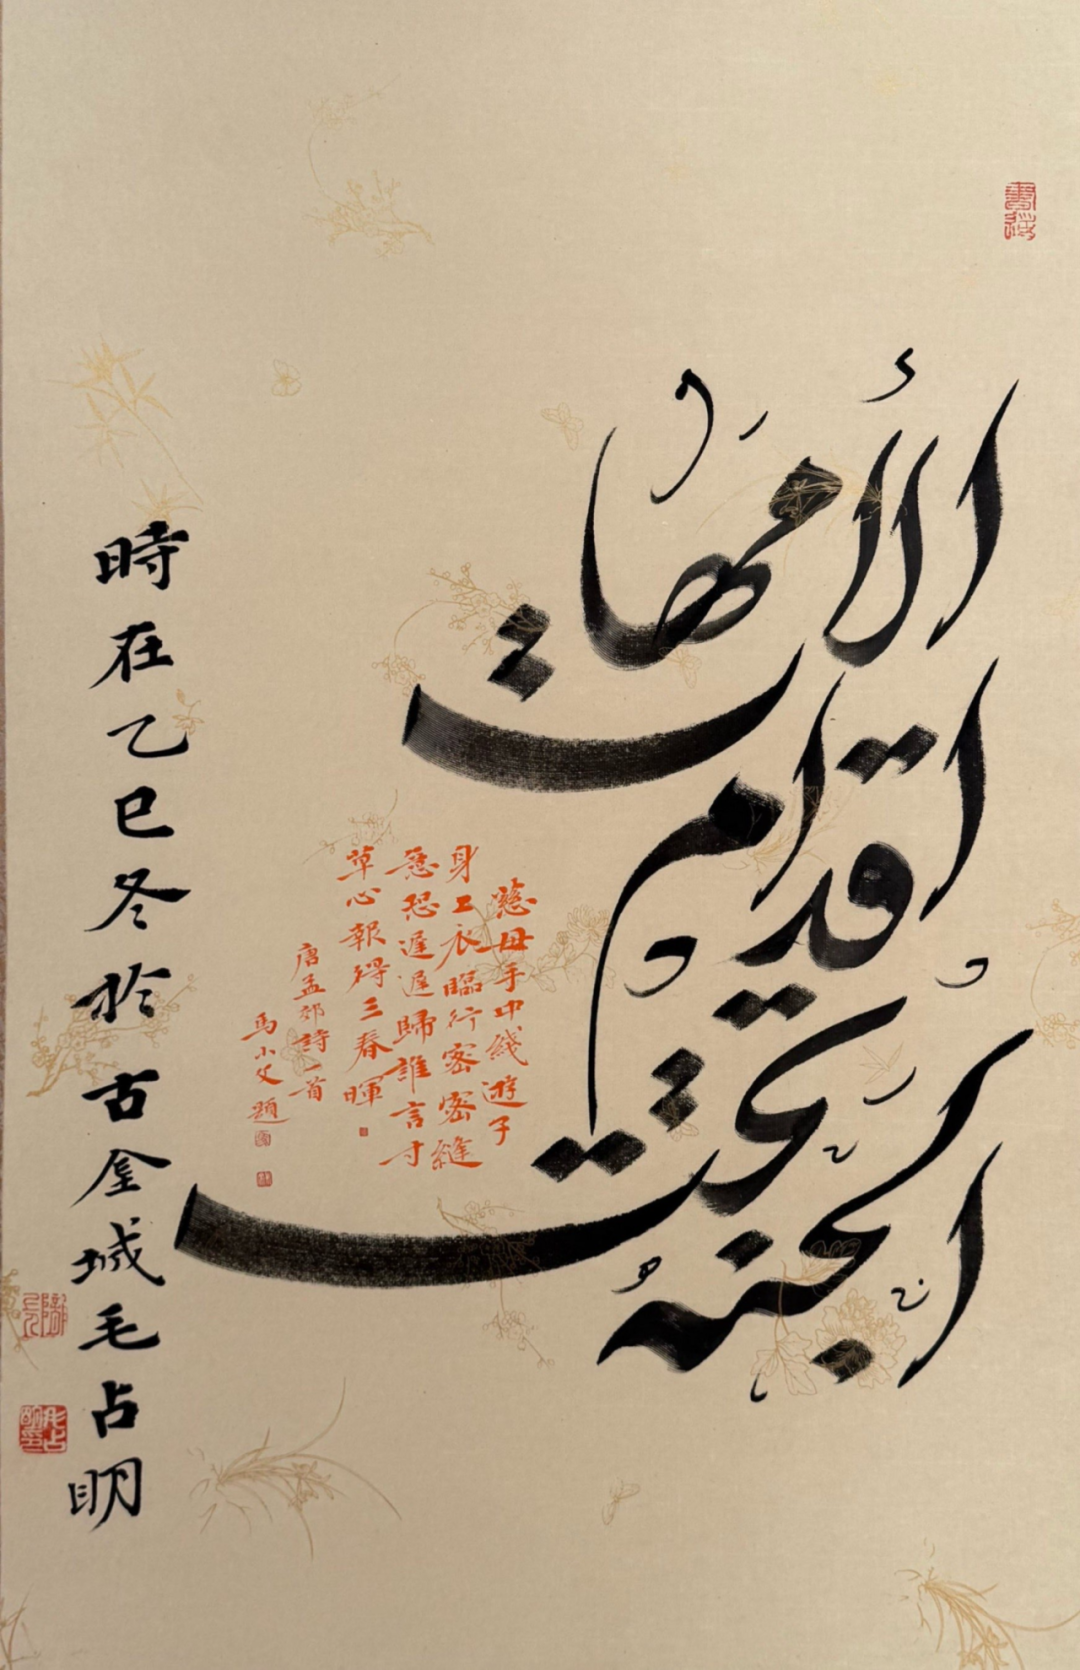 الجنة
تحت
اقدام
الأمهات
慈母手中綫遊子
身上衣臨行密密縫
意恐遲遲歸誰言寸
草心報得三春暉
唐孟郊詩一首
馬小題
時在乙巳冬於古金城毛占明